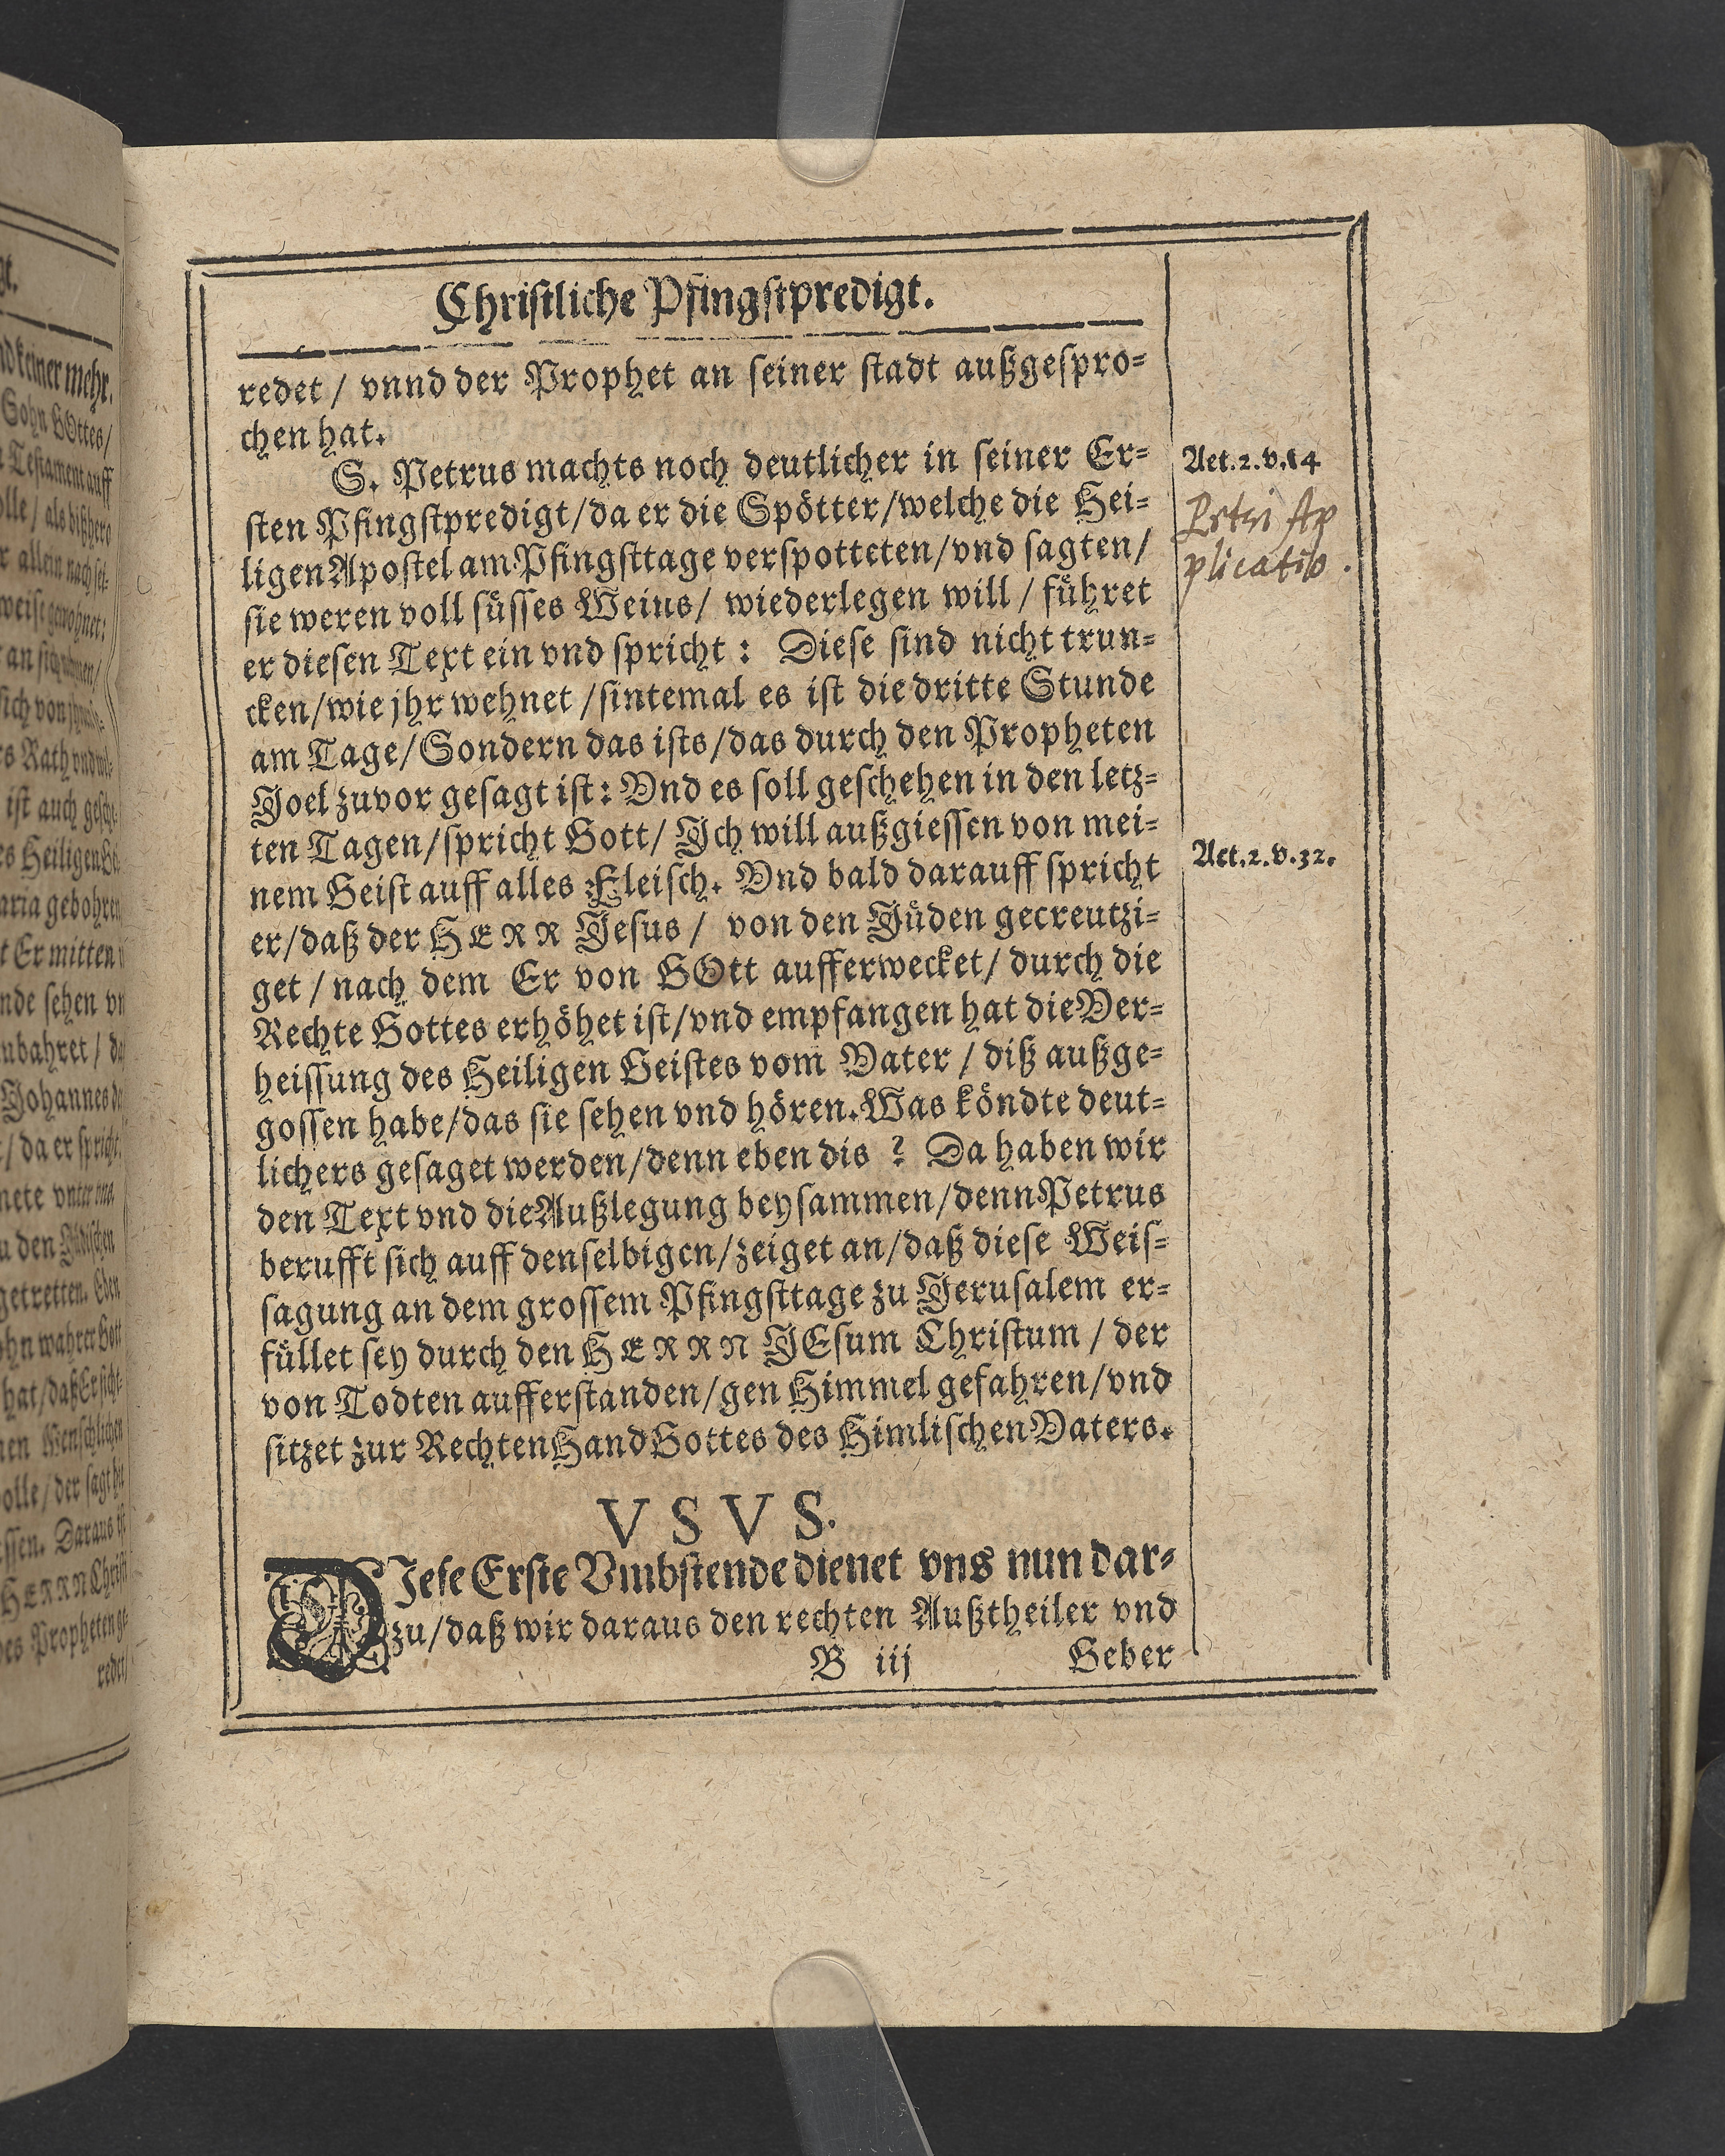 Christliche Pfingstpredigt.
redet / vnnd der Prophet an seiner stadt außgespro-
chen hat.
S. Petrus machts noch deutlicher in seiner Er-
Act. 2. v. 14
sten Pfingstpredigt/da er die Spötter/welche die Hei-
Petri Ap
ligen Apostel am Pfingsttage verspotteten/vnd sagten/
plicatio.
sie weren voll süsses Weins/ wiederlegen will / führet
er diesen Text ein vnd spricht: Diese sind nicht trun-
cken/wie jhr wehnet /sintemal es ist die dritte Stunde
am Tage/Sondern das ists/das durch den Propheten
Joel zuvor gesagt ist: Vnd es soll geschehen in den letz-
ten Tagen/spricht Gott/ Jch will außgiessen von mei-
nem Geist auff alles Fleisch. Vnd bald darauff spricht
Act. 2. v. 32.
er/daß der HERR Jesus / von den Jüden gecreutzi-
get / nach dem Er von GOtt aufferwecket/ durch die
Rechte Gottes erhöhet ist/vnd empfangen hat die Ver-
heissung des Heiligen Geistes vom Vater / diß außge-
gossen habe/das sie sehen vnd hören. Was köndte deut-
lichers gesaget werden/denn eben dis ? Da haben wir
den Text vnd die Außlegung beysammen/denn Petrus
berufft sich auff denselbigen/zeiget an/daß diese Weis-
sagung an dem grossem Pfingsttage zu Jerusalem er-
füllet sey durch den HERRN JEsum Christum / der
von Todten aufferstanden/gen Himmel gefahren/vnd
sitzet zur Rechten Hand Gottes des Himlischen Vaters.
VSVS.
DJese Erste Vmbstende dienet vns nun dar-
zu/daß wir daraus den rechten Außtheiler vnd
B iij Geber